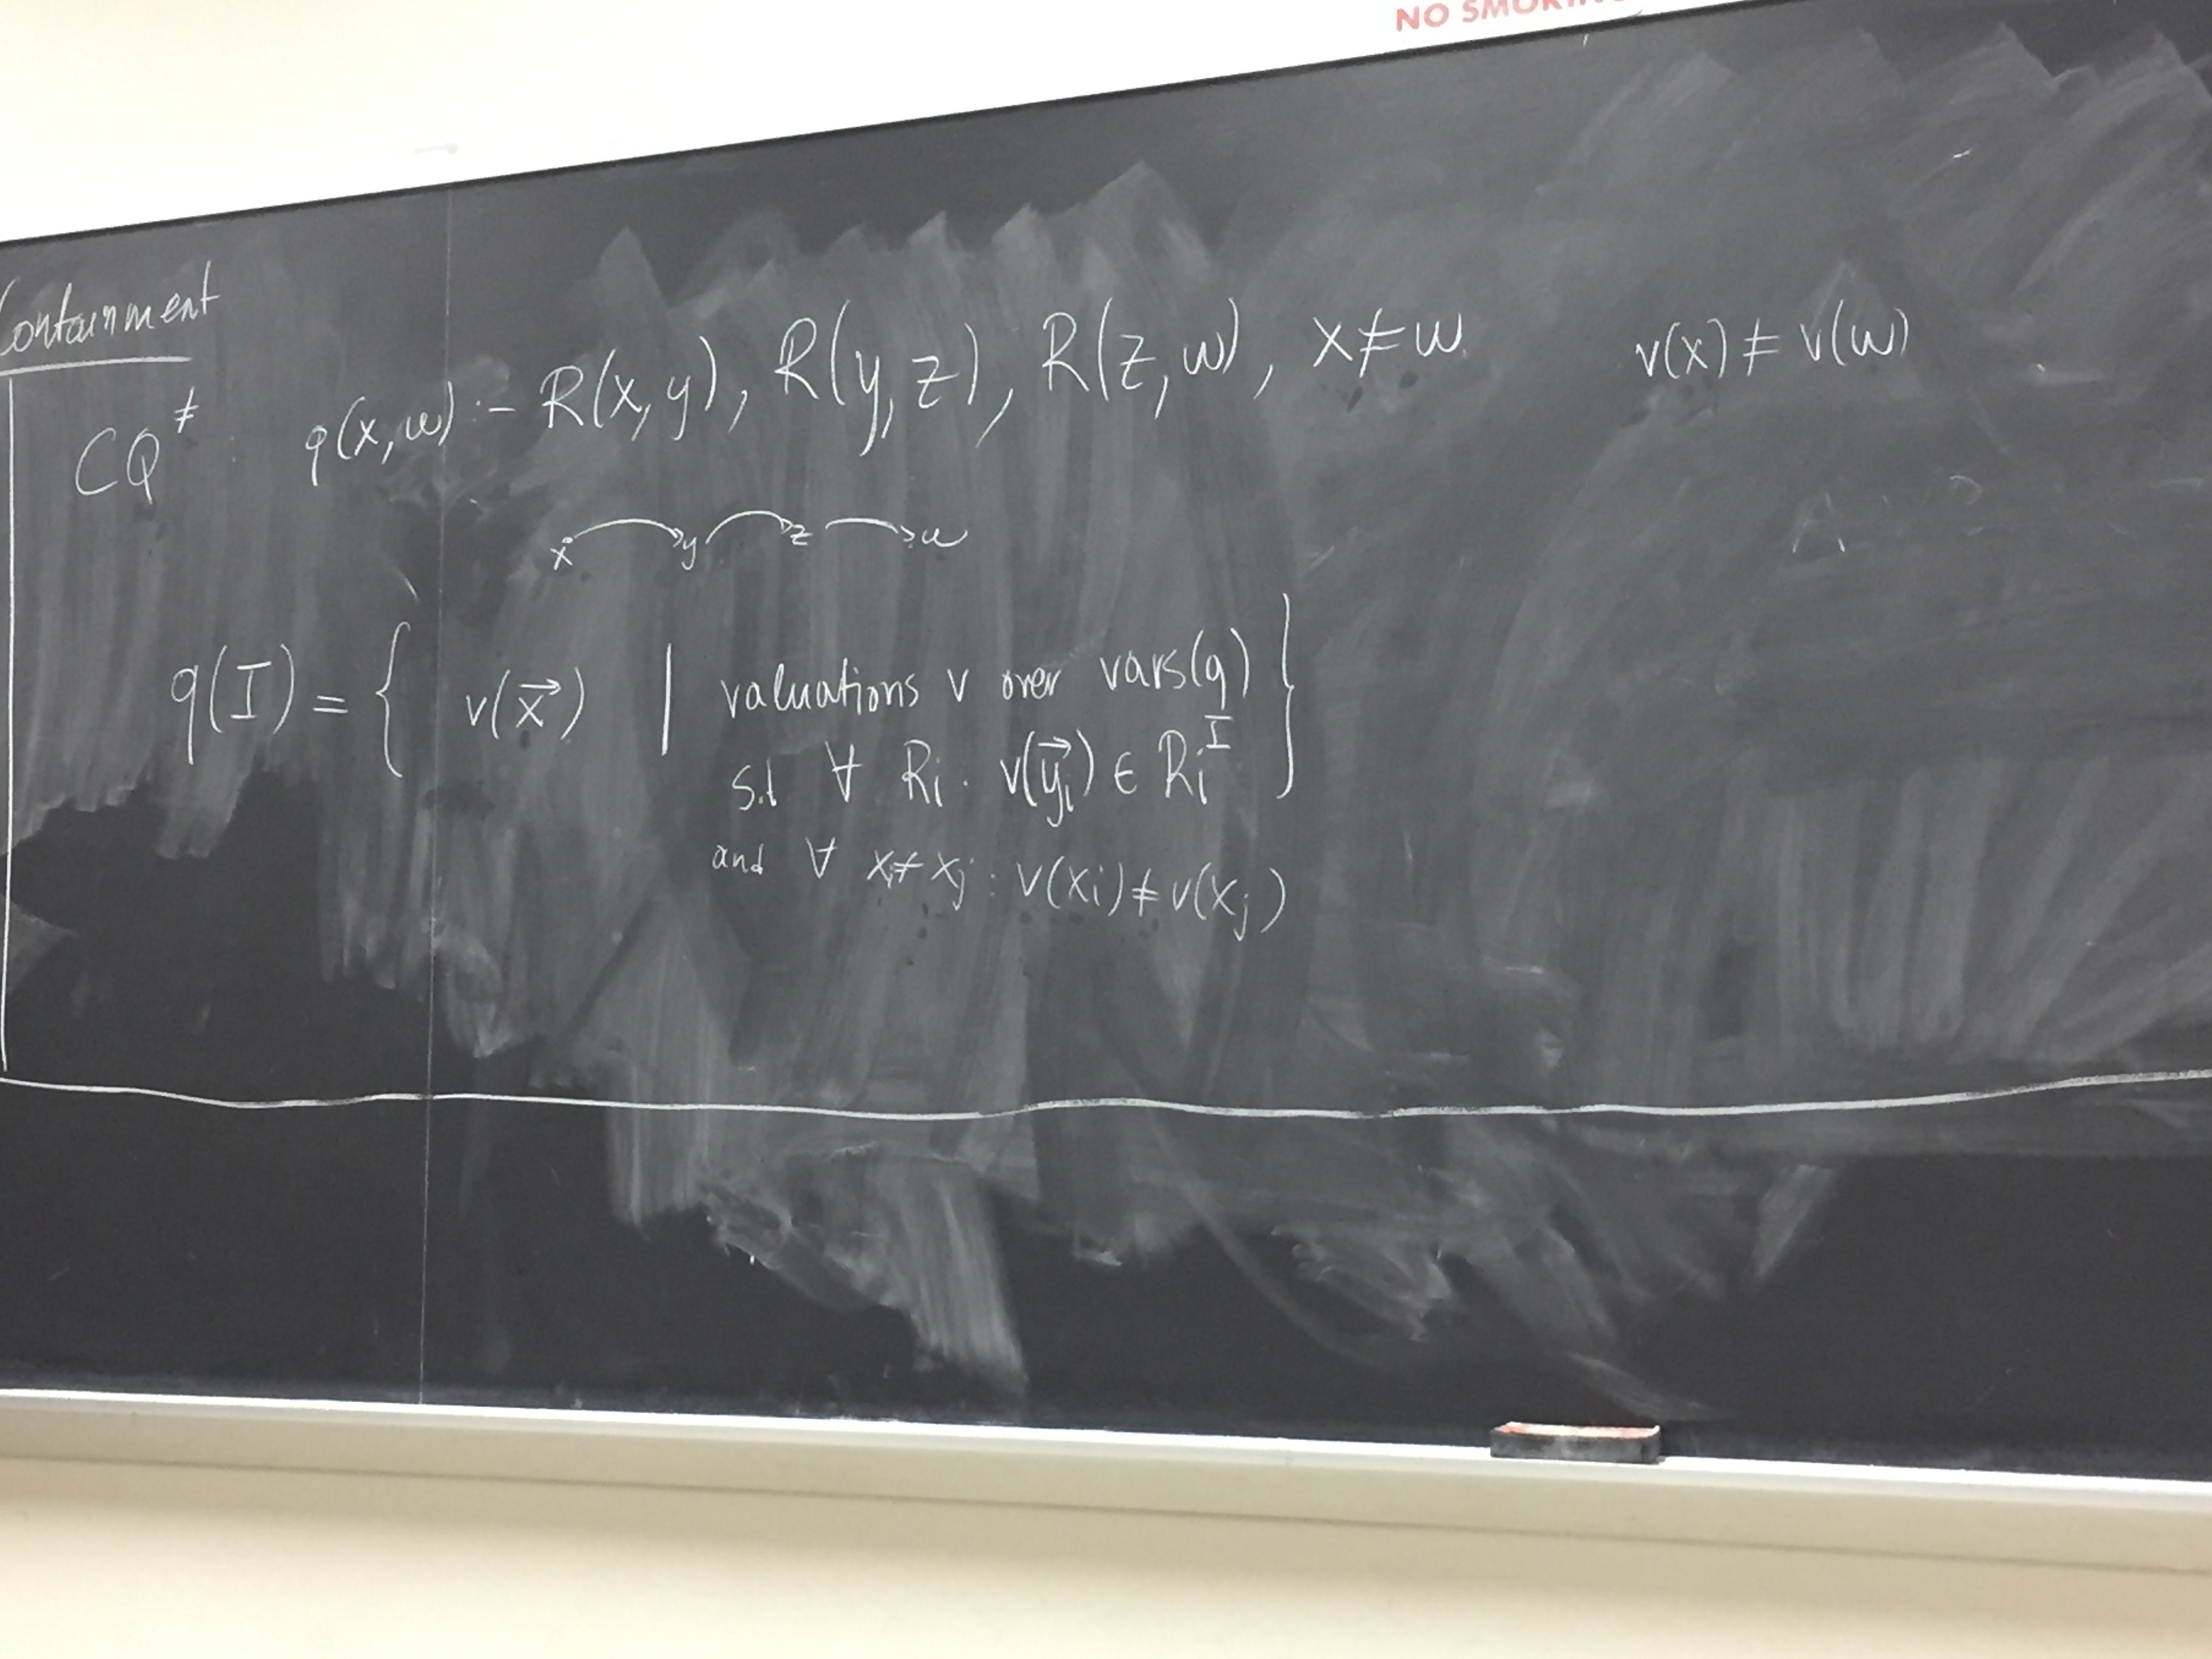 NO SMOKING
Containment
CQ^≠ : q(x,w) :- R(x,y), R(y,z), R(z,w), x≠w v(x) ≠ v(w)
x y z w
q(I) = { v(x⃗) | valuations v over vars(q)
s.t ∀ Ri . v(y⃗i) ∈ Ri^I }
and ∀ xi≠xj : v(xi) ≠ v(xj)